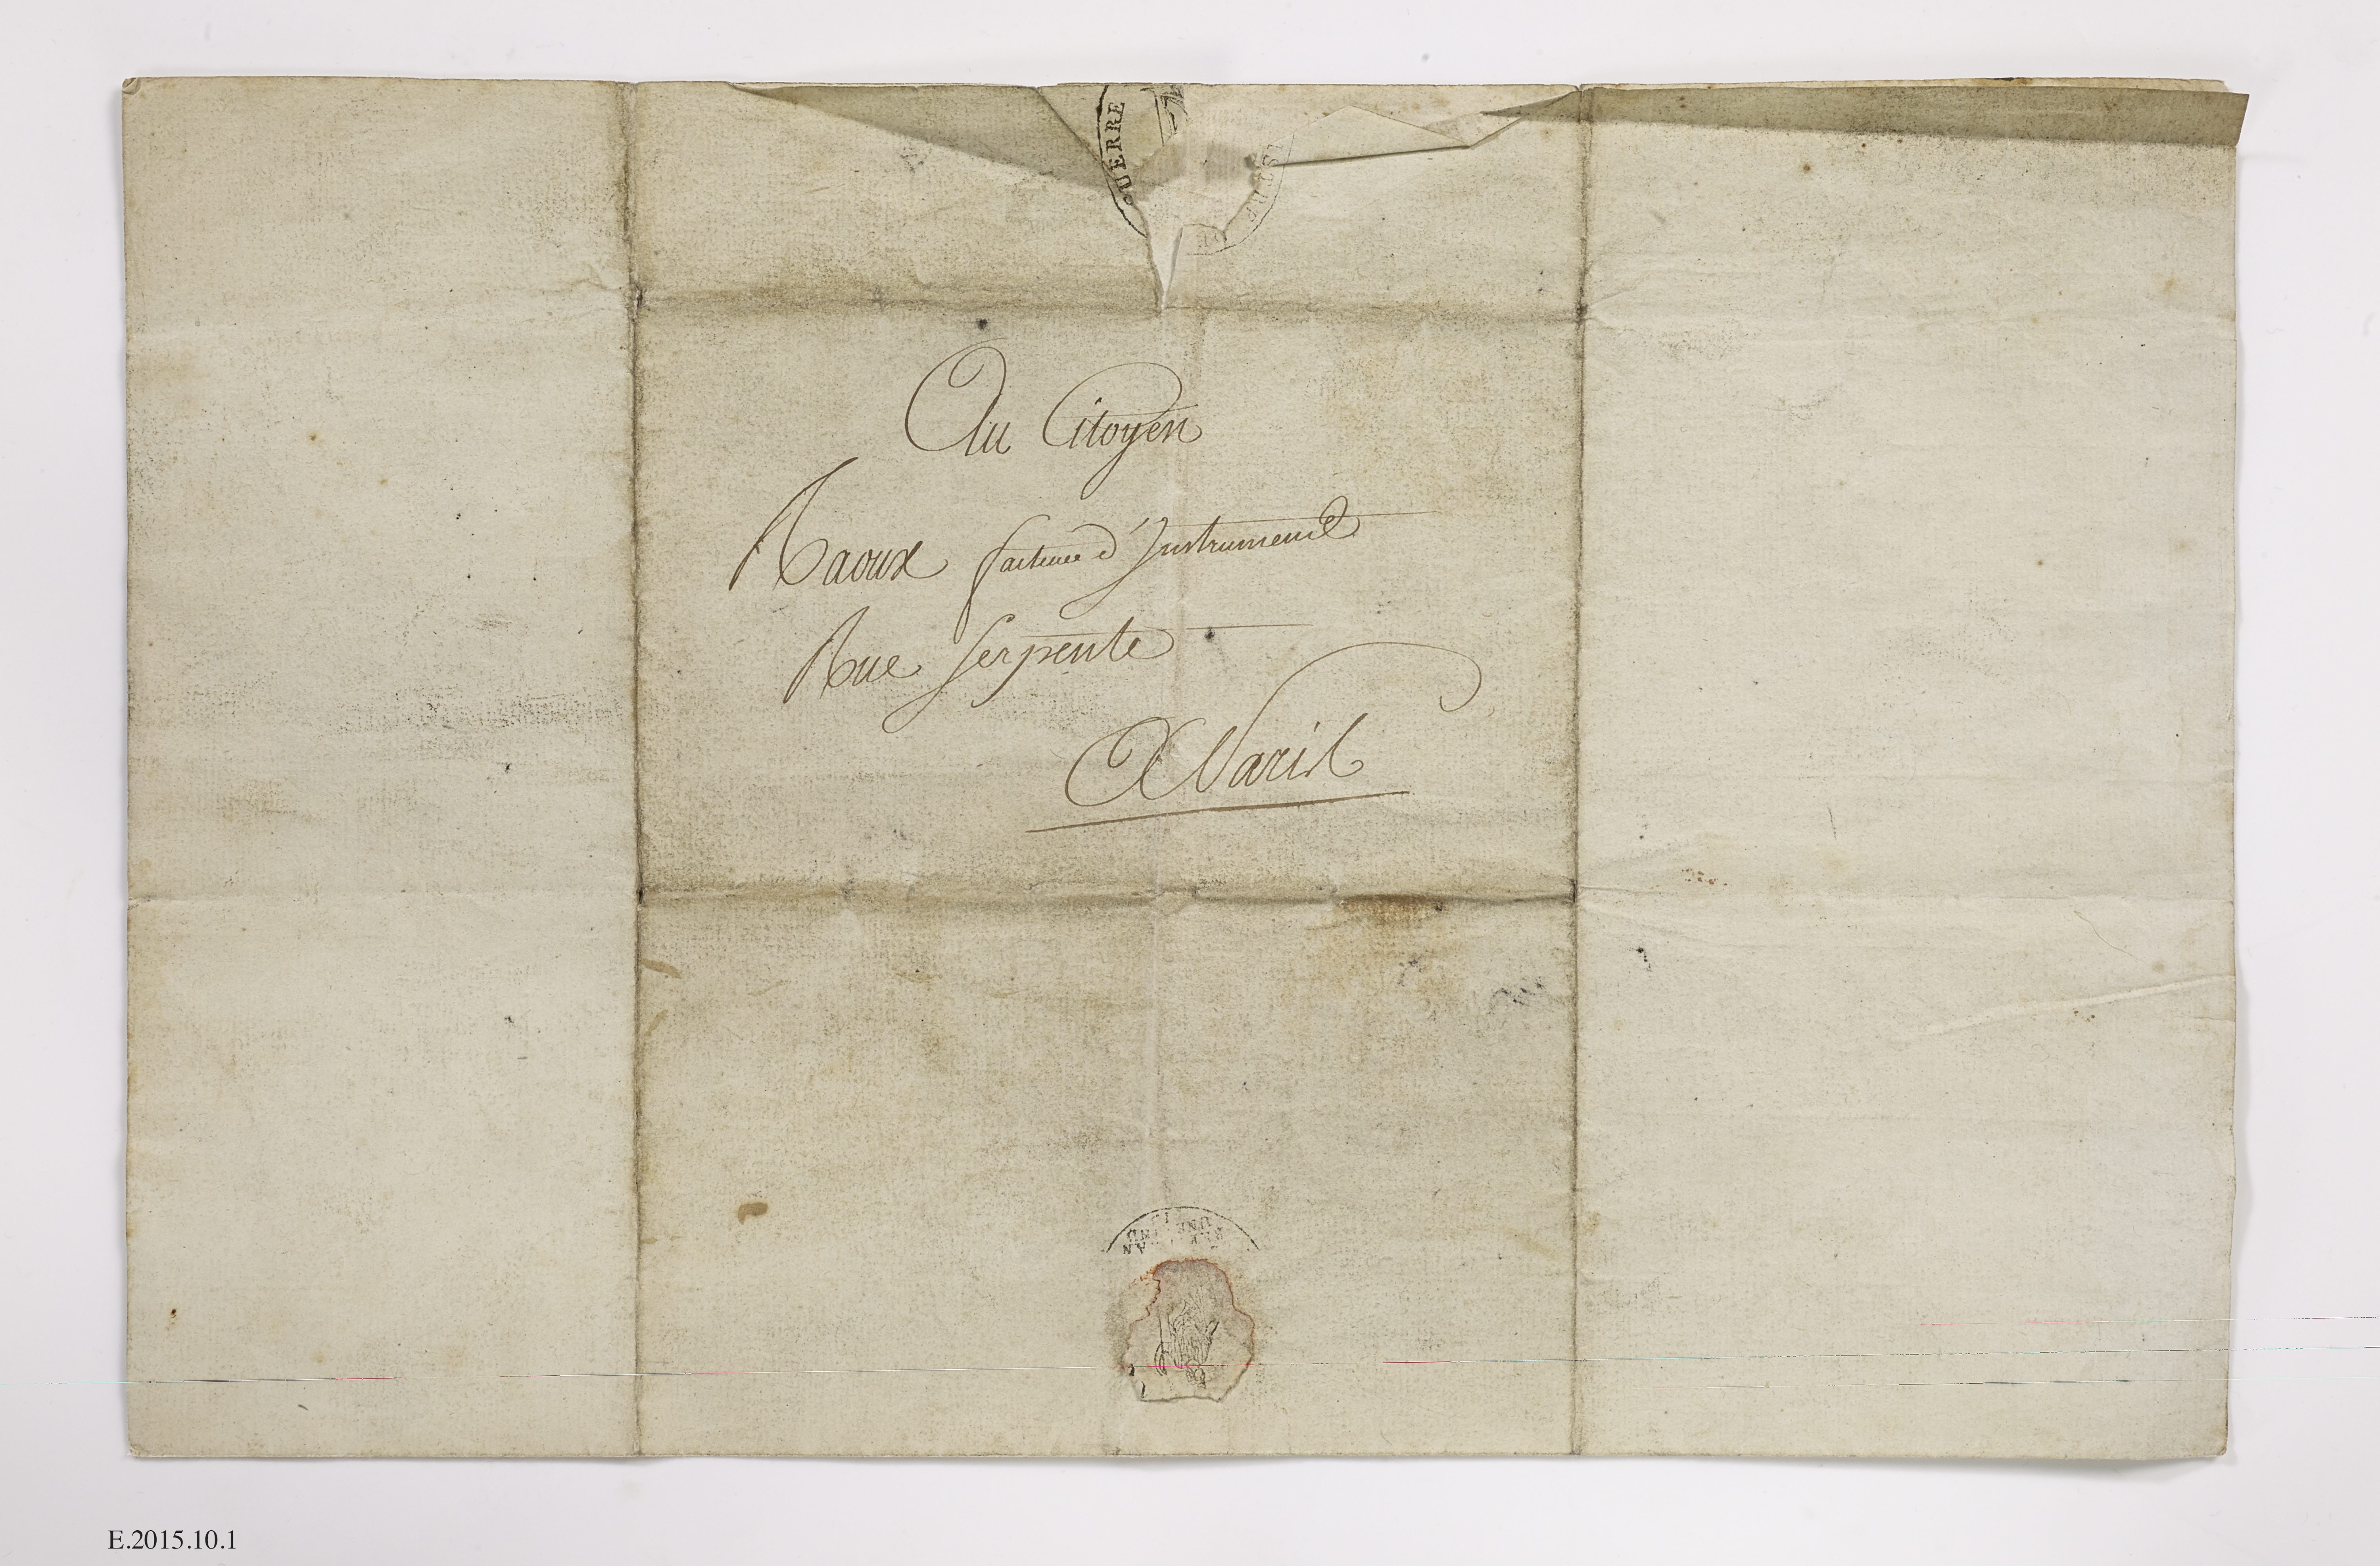 GUERRE
Au Citoyen
Raoux facteur d'Instruments
Rue Serpente
A Paris
E.2015.10.1